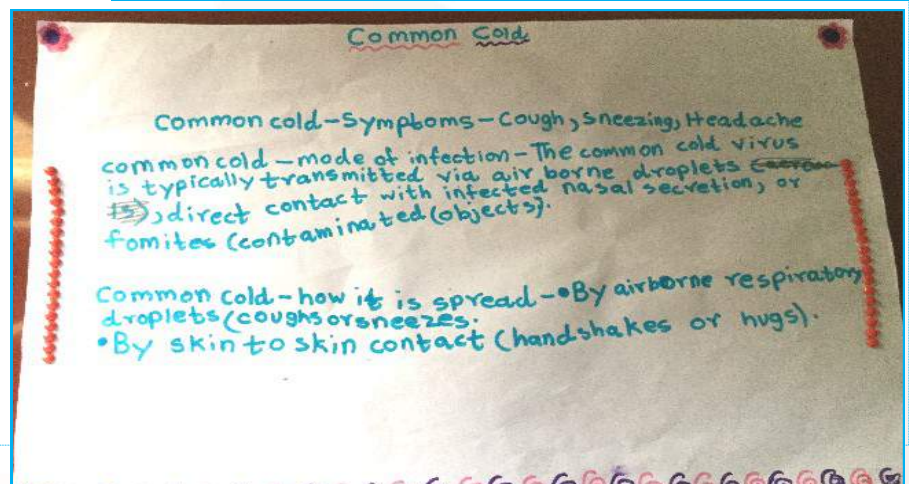 Common Cold
Common cold-Symptoms-Cough, Sneezing, Headache
common cold - mode of infection - The common cold virus
is typically transmitted via air borne droplets
, direct contact with infected nasal secretion, or
fomites (contaminated (objects).
Common cold - how it is spread - •By airborne respiratory
droplets (coughs or sneezes.
•By skin to skin contact (handshakes or hugs).